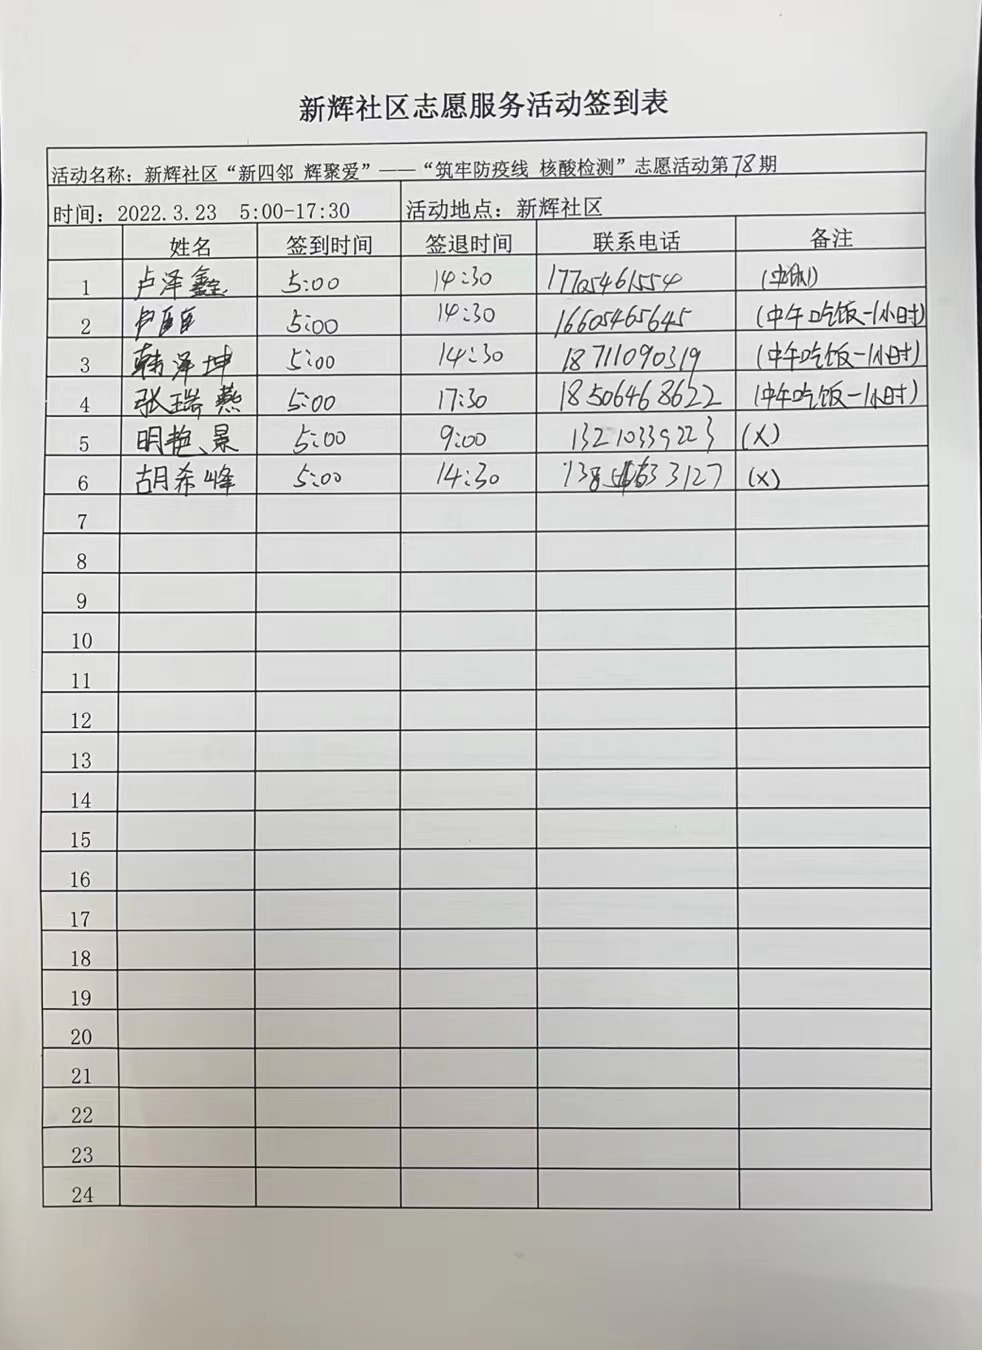 新辉社区志愿服务活动签到表
活动名称：新辉社区“新四邻 辉聚爱”——“筑牢防疫线 核酸检测”志愿活动第78期
时间：2022.3.23 5:00-17:30 活动地点：新辉社区
姓名 签到时间 签退时间 联系电话 备注
1 卢泽鑫 5:00 14:30 17705461554
2 5:00 14:30 16605465645 (中午吃饭一小时)
3 韩泽坤 5:00 14:30 18711090319 (中午吃饭一小时)
4 张瑞燕 5:00 17:30 18506468622 (中午吃饭一小时)
5 明艳景 5:00 9:00 13210339223 (X)
6 胡希峰 5:00 14:30 (X)
7
8
9
10
11
12
13
14
15
16
17
18
19
20
21
22
23
24